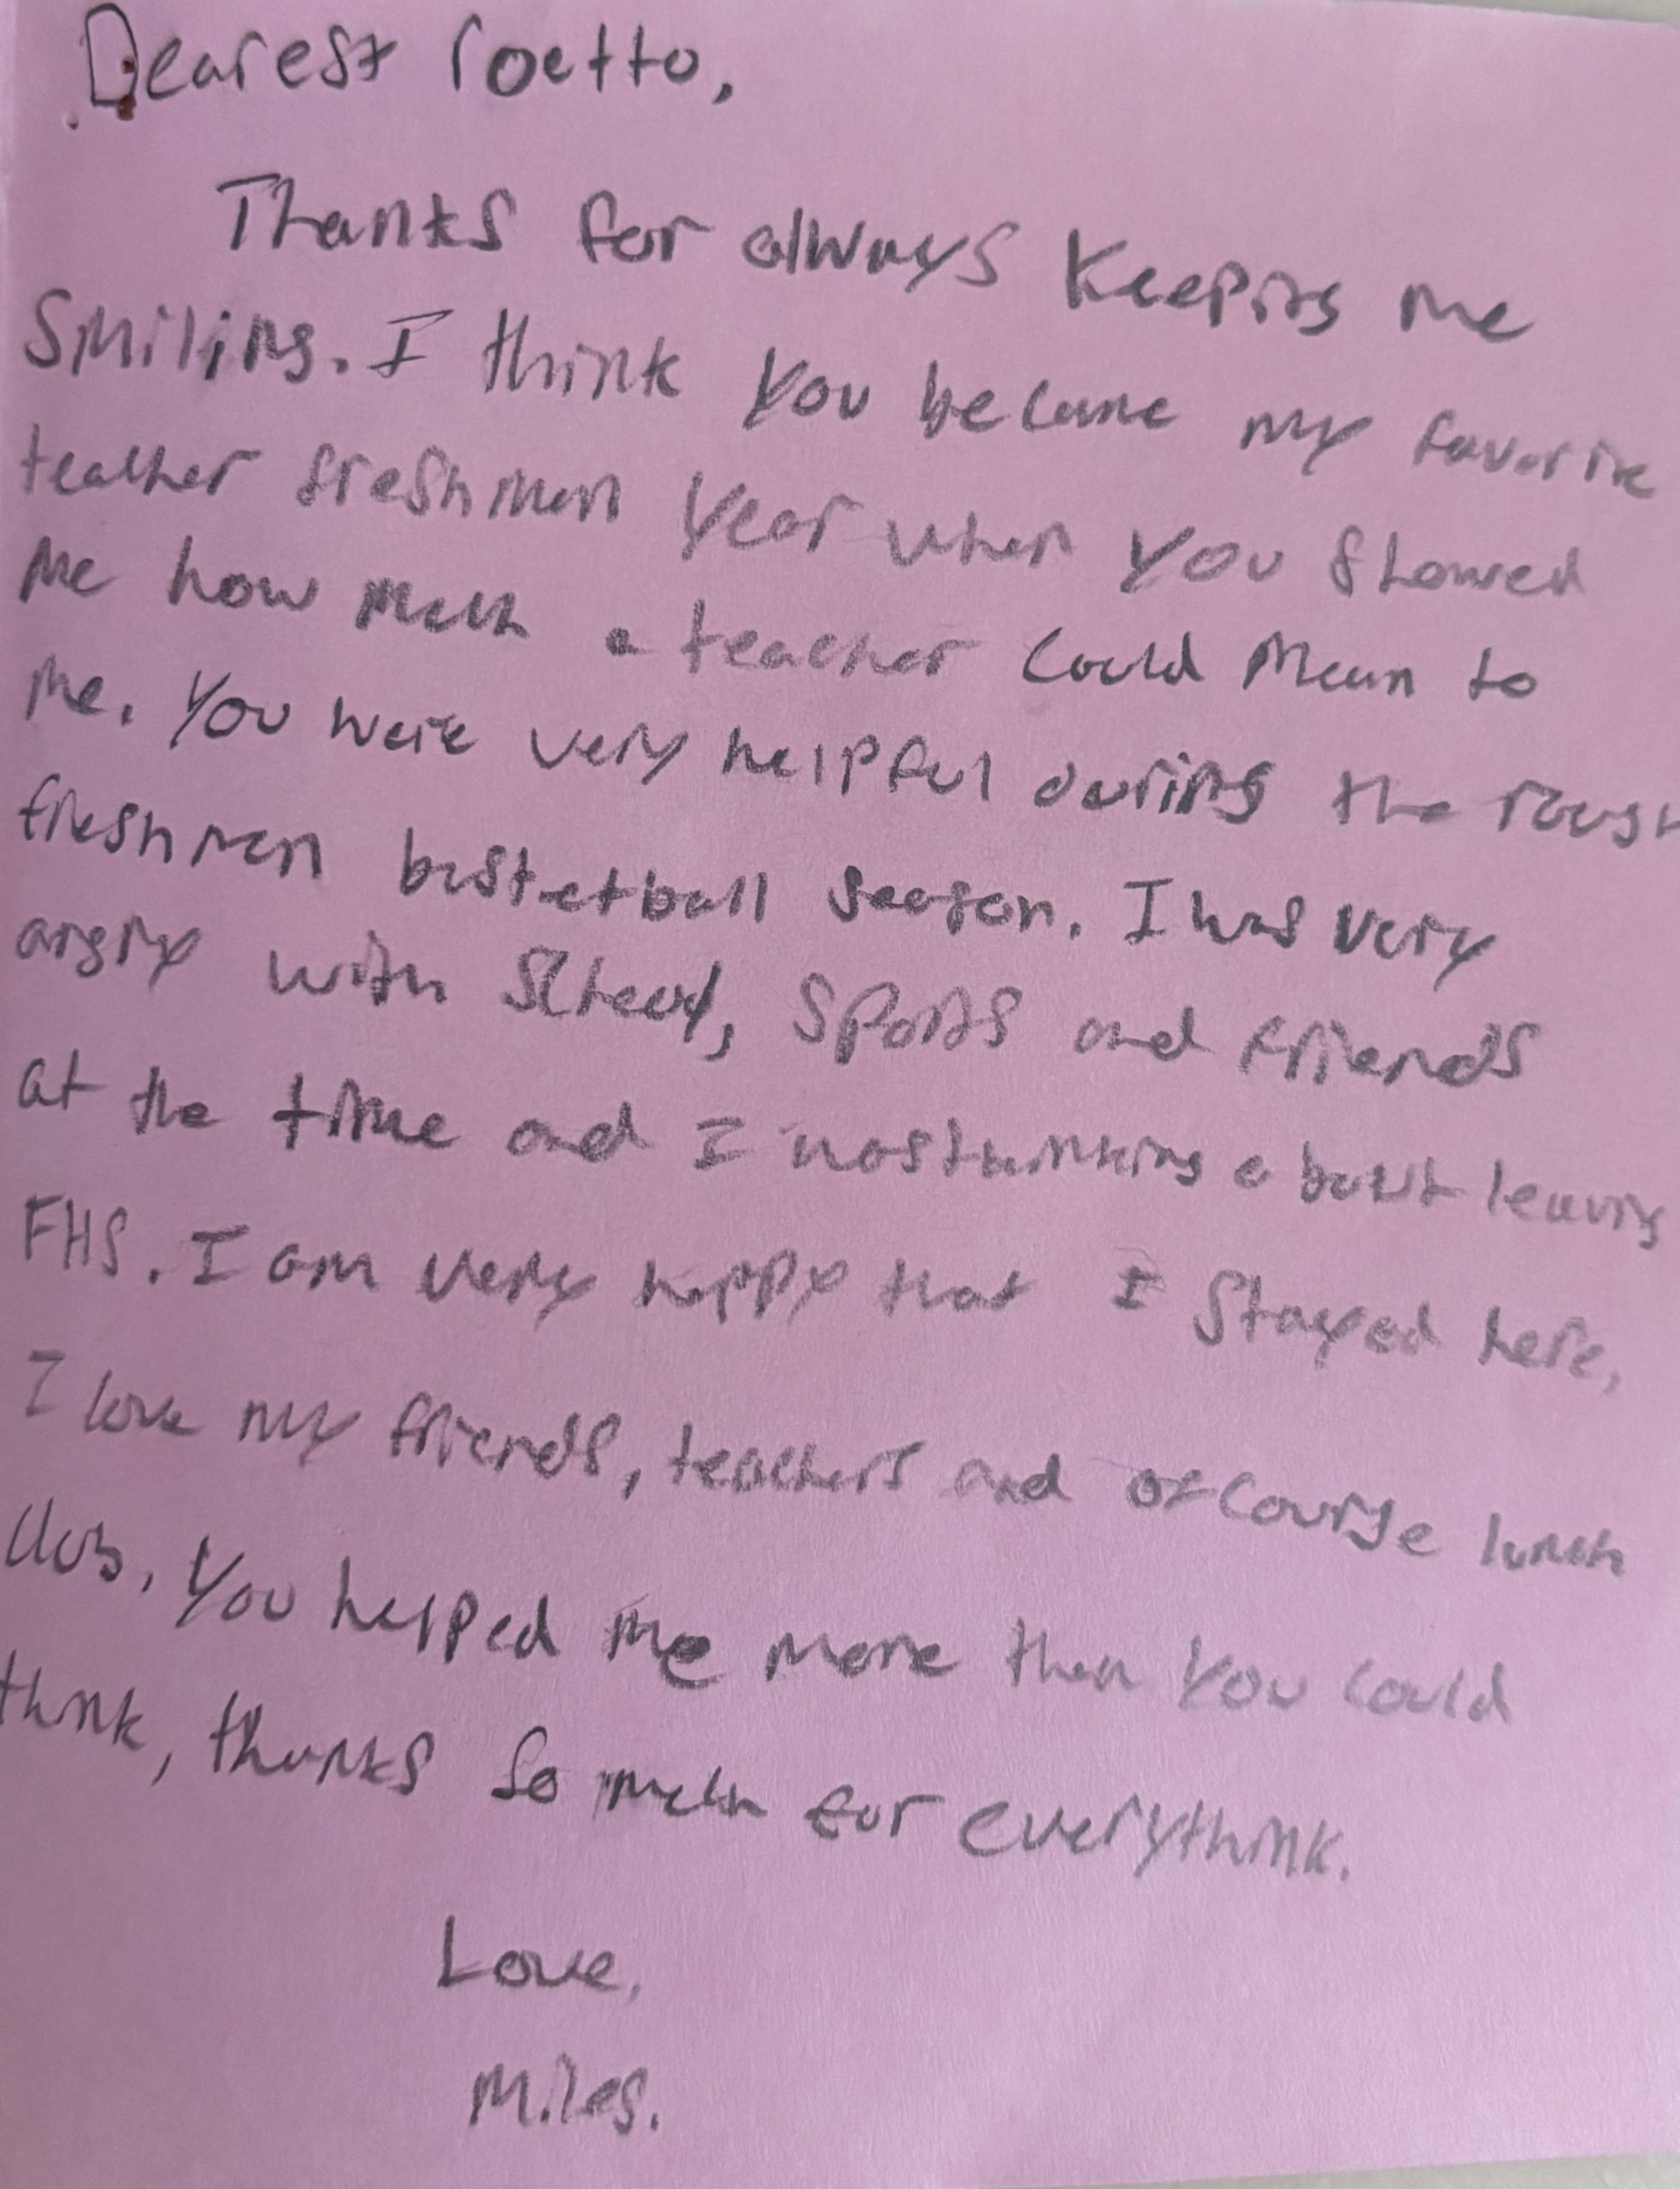 Dearest roetto,
Thanks for always Keeping me
Smiling. I think you became my favorite
teacher freshmen year when you showed
me how much a teacher could mean to
me. You were very helpful during the rough
freshmen basketball season. I was very
angry with School, Sports and friends
at the time and I was thinking about leaving
FHS. I am very happy that I Stayed here,
I love my friends, teachers and of course lunch
club. You helped me more then you could
think, thanks so much for everythink.
Love,
Miles.